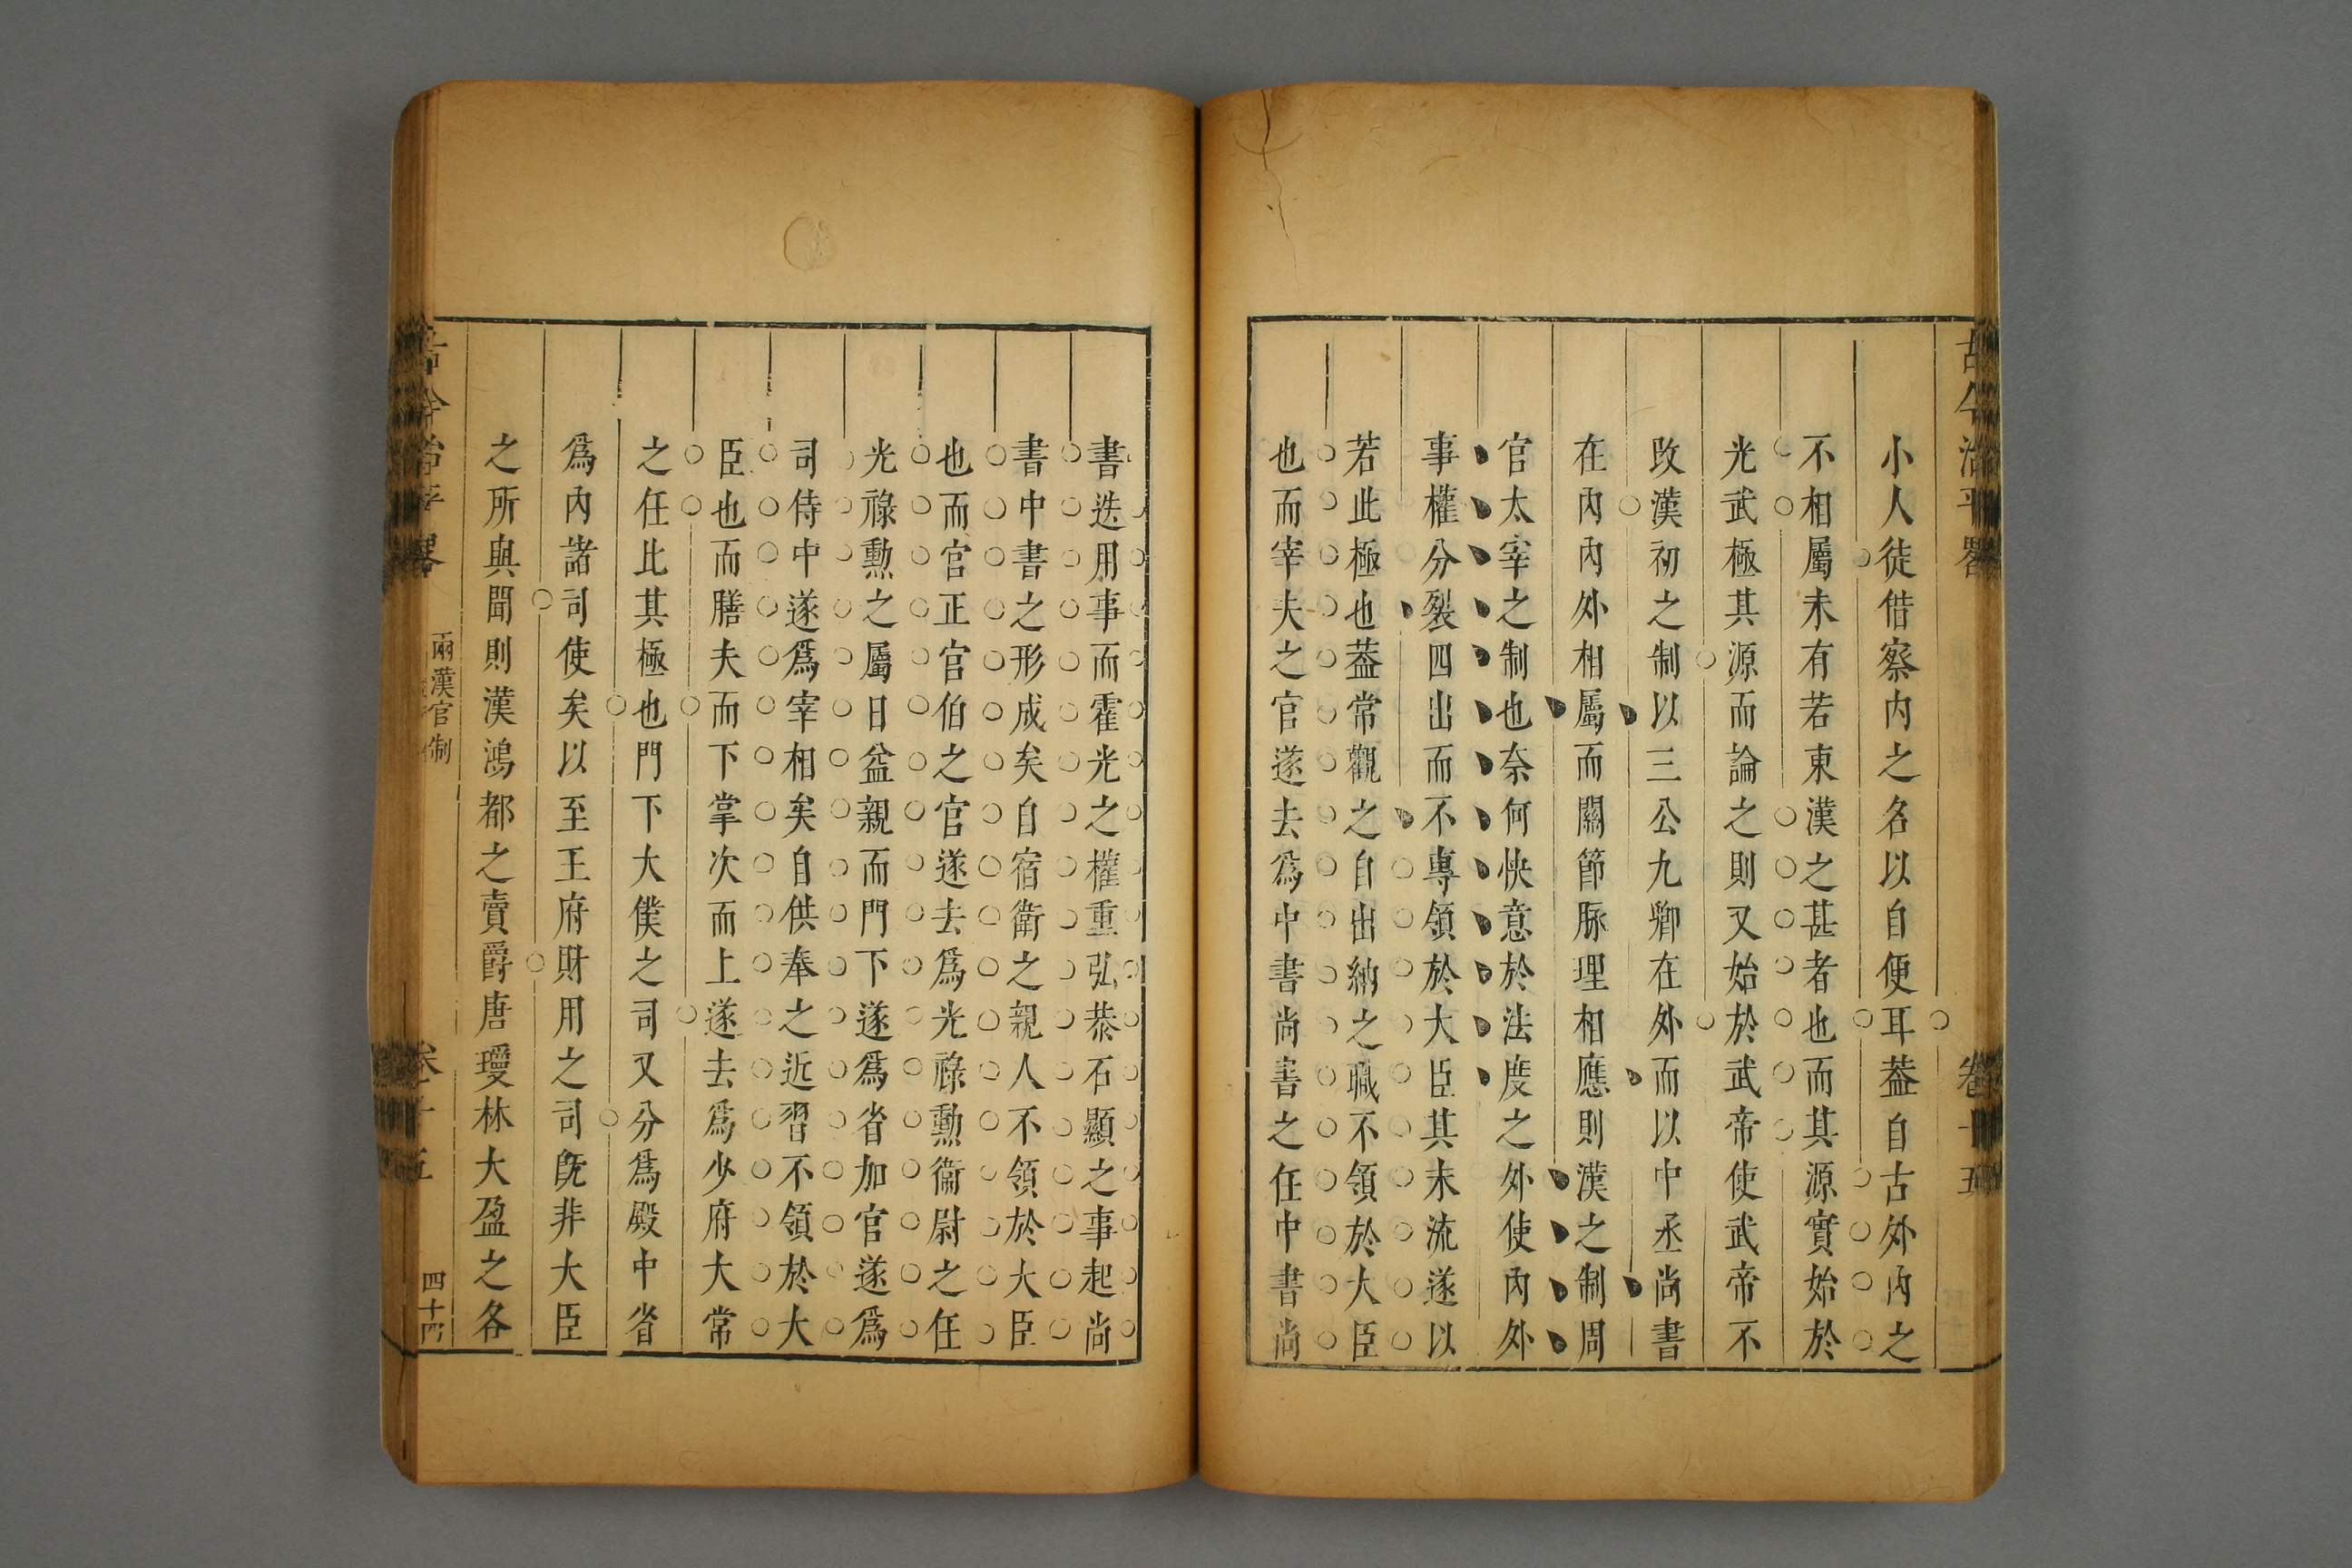 古今治平畧
卷十五
小人徒借察内之名以自便耳葢自古外内之
不相屬未有若東漢之甚者也而其源實始於
光武極其源而論之則又始於武帝使武帝不
攺漢初之制以三公九卿在外而以中丞尚書
在内内外相屬而關節脉理相應則漢之制周
官太宰之制也奈何快意於法度之外使内外
事權分裂四出而不專領於大臣其末流遂以
若此極也葢常觀之自出納之職不領於大臣
也而宰夫之官遂去爲中書尚書之任中書尚
書迭用事而霍光之權重弘恭石顯之事起尚
書中書之形成矣自宿衛之親人不領於大臣
也而官正官伯之官遂去爲光祿勲衞尉之任
光祿勲之屬日益親而門下遂爲省加官遂爲
司侍中遂爲宰相矣自供奉之近習不領於大
臣也而膳夫而下掌次而上遂去爲少府大常
之任比其極也門下大僕之司又分爲殿中省
爲内諸司使矣以至王府財用之司旣非大臣
之所與聞則漢鴻都之賣爵唐瓊林大盈之各
古今治平畧
兩漢官制
卷十五
四十四